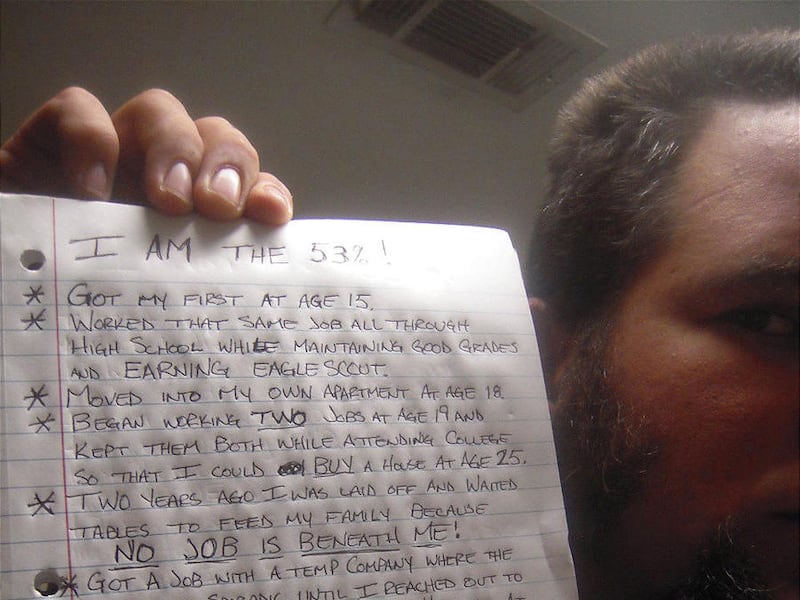 I AM THE 53%!
* GOT MY FIRST AT AGE 15.
* WORKED THAT SAME JOB ALL THROUGH
HIGH SCHOOL WHILE MAINTAINING GOOD GRADES
AND EARNING EAGLE SCOUT.
* MOVED INTO MY OWN APARTMENT AT AGE 18.
* BEGAN WORKING TWO JOBS AT AGE 19 AND
KEPT THEM BOTH WHILE ATTENDING COLLEGE
SO THAT I COULD BUY A HOUSE AT AGE 25.
* TWO YEARS AGO I WAS LAID OFF AND WAITED
TABLES TO FEED MY FAMILY BECAUSE
NO JOB IS BENEATH ME!
* GOT A JOB WITH A TEMP COMPANY WHERE THE
SPORADIC UNTIL I REACHED OUT TO